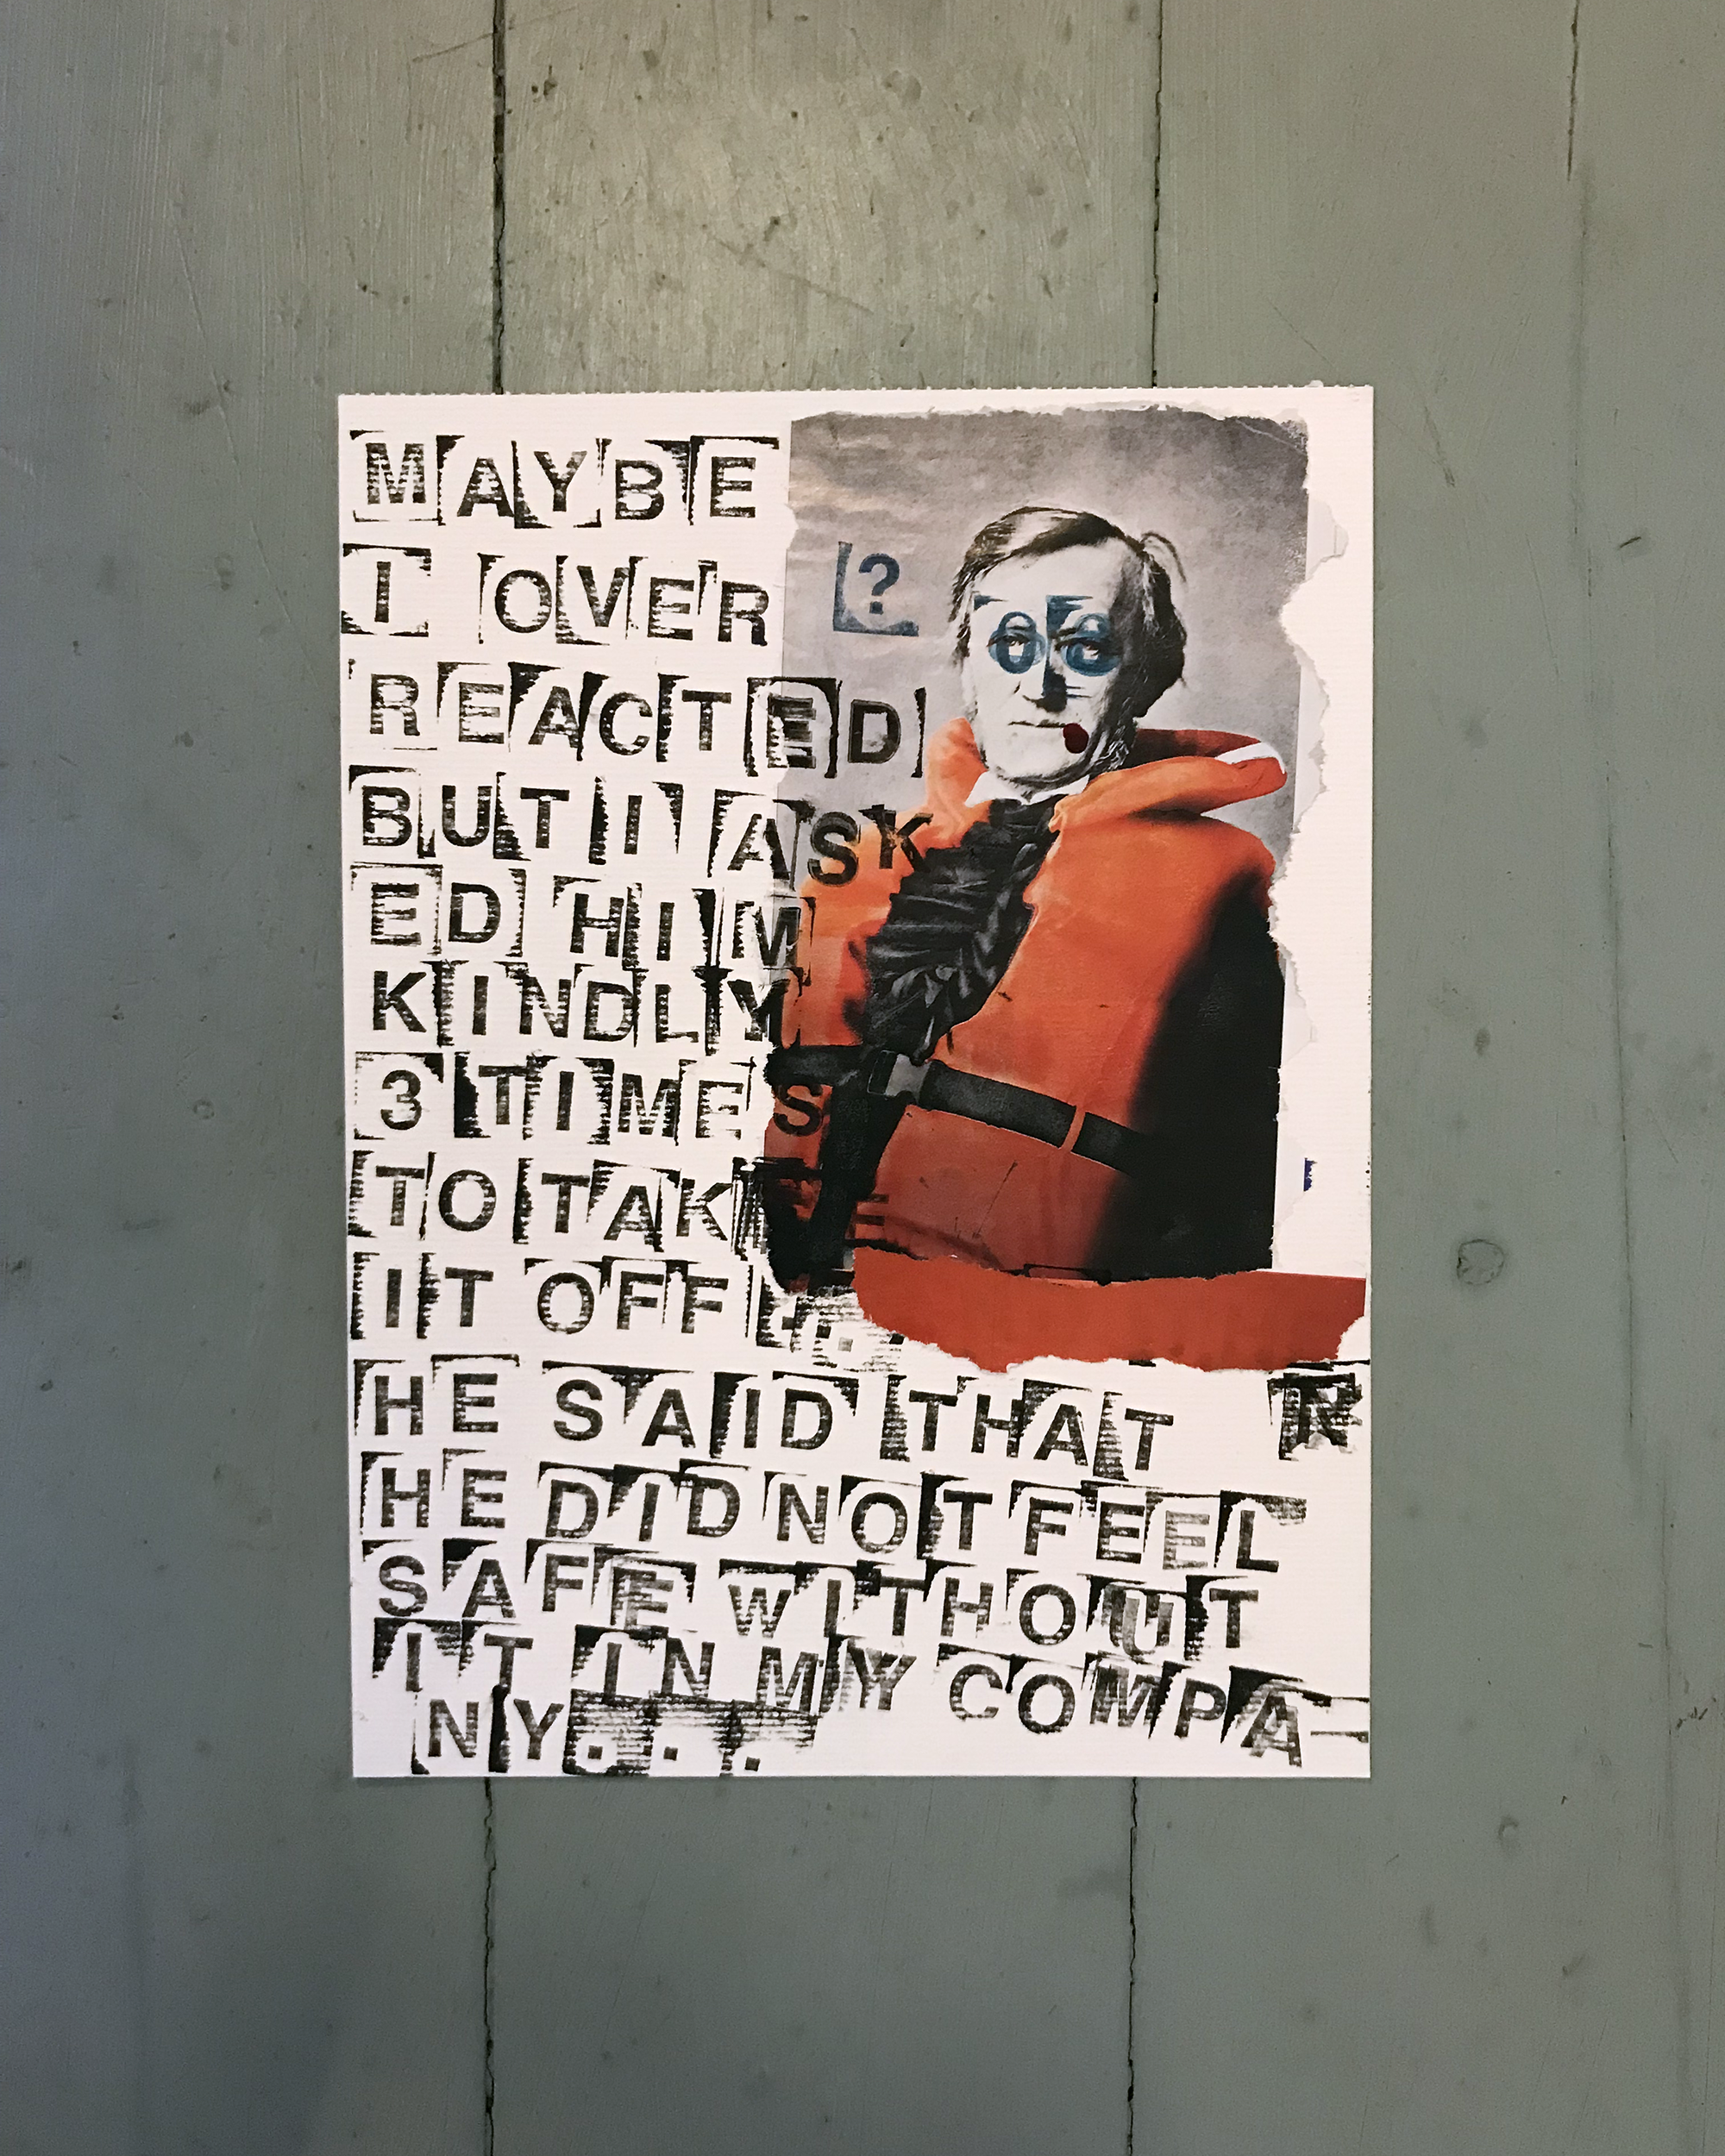 MAYBE
I OVER
?
REACTED
BUT I ASK
ED HIM
KINDLY
3 TIMES
TO TAKE
IT OFF...
HE SAID THAT
HE DID NOT FEEL
SAFE WITHOUT
IT IN MY COMPA
NY...